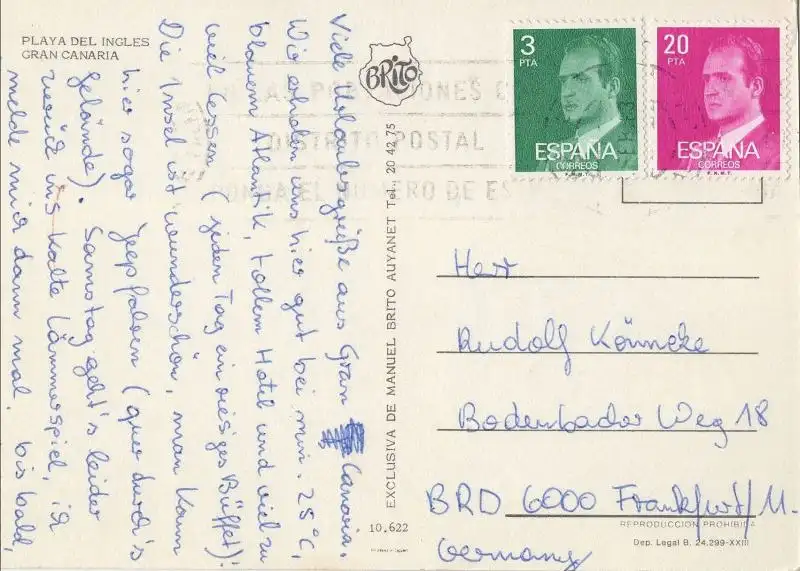 PLAYA DEL INGLES
GRAN CANARIA
Viele Urlaubsgrüße aus Gran
Canaria.
Wir erholen uns hier gut bei min. 25°C,
blauem Atlantik, tollem Hotel und viel zu
viel Essen (jeden Tag ein riesiges Büffet)!
Die Insel ist wunderschön, man kann
hier sogar Jeepfahren (quer durch's
Gelände). Samstag geht's leider
zurück ins kalte Lämmerspiel, ich
melde mich dann mal, bis bald,
BRITO
EXCLUSIVA DE MANUEL BRITO AUYANET Tel. 20 42 75
10.622
3
PTA
ESPAÑA
CORREOS
F.N.M.T.
20
PTA
ESPAÑA
CORREOS
F.N.M.T.
DISTRITO POSTAL
PONGA EL NUMERO DE
Herr
Rudolf Könneke
Bodenbacher Weg 18
BRD 6000 Frankfurt/M.
Germany
REPRODUCCION PROHIBIDA
Dep. Legal B. 24.299-XXIII